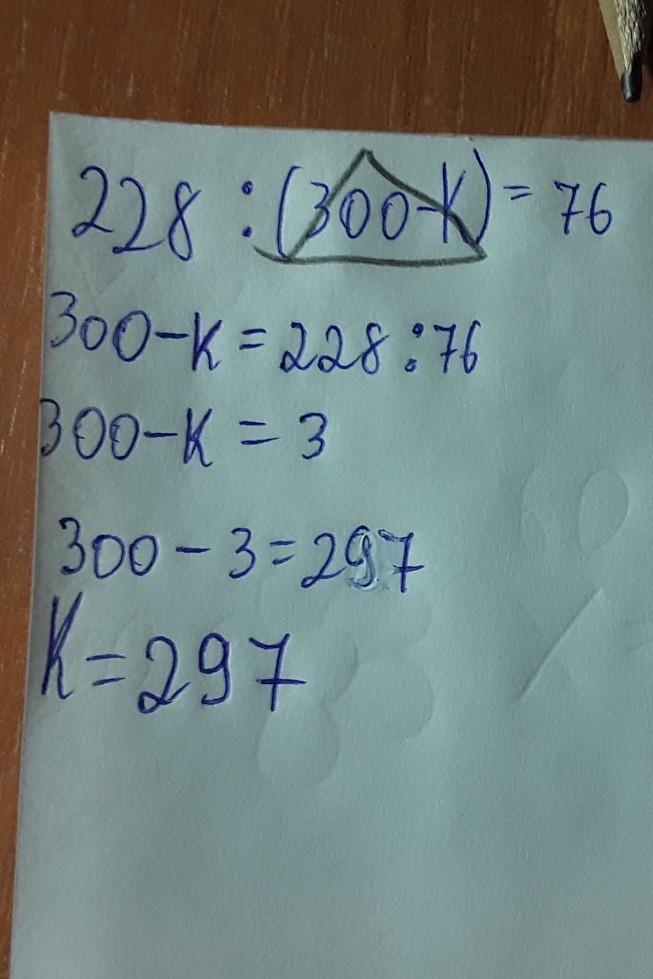 228 : (300-K) = 76
300-K = 228 : 76
300-K = 3
300 - 3 = 297
K = 297